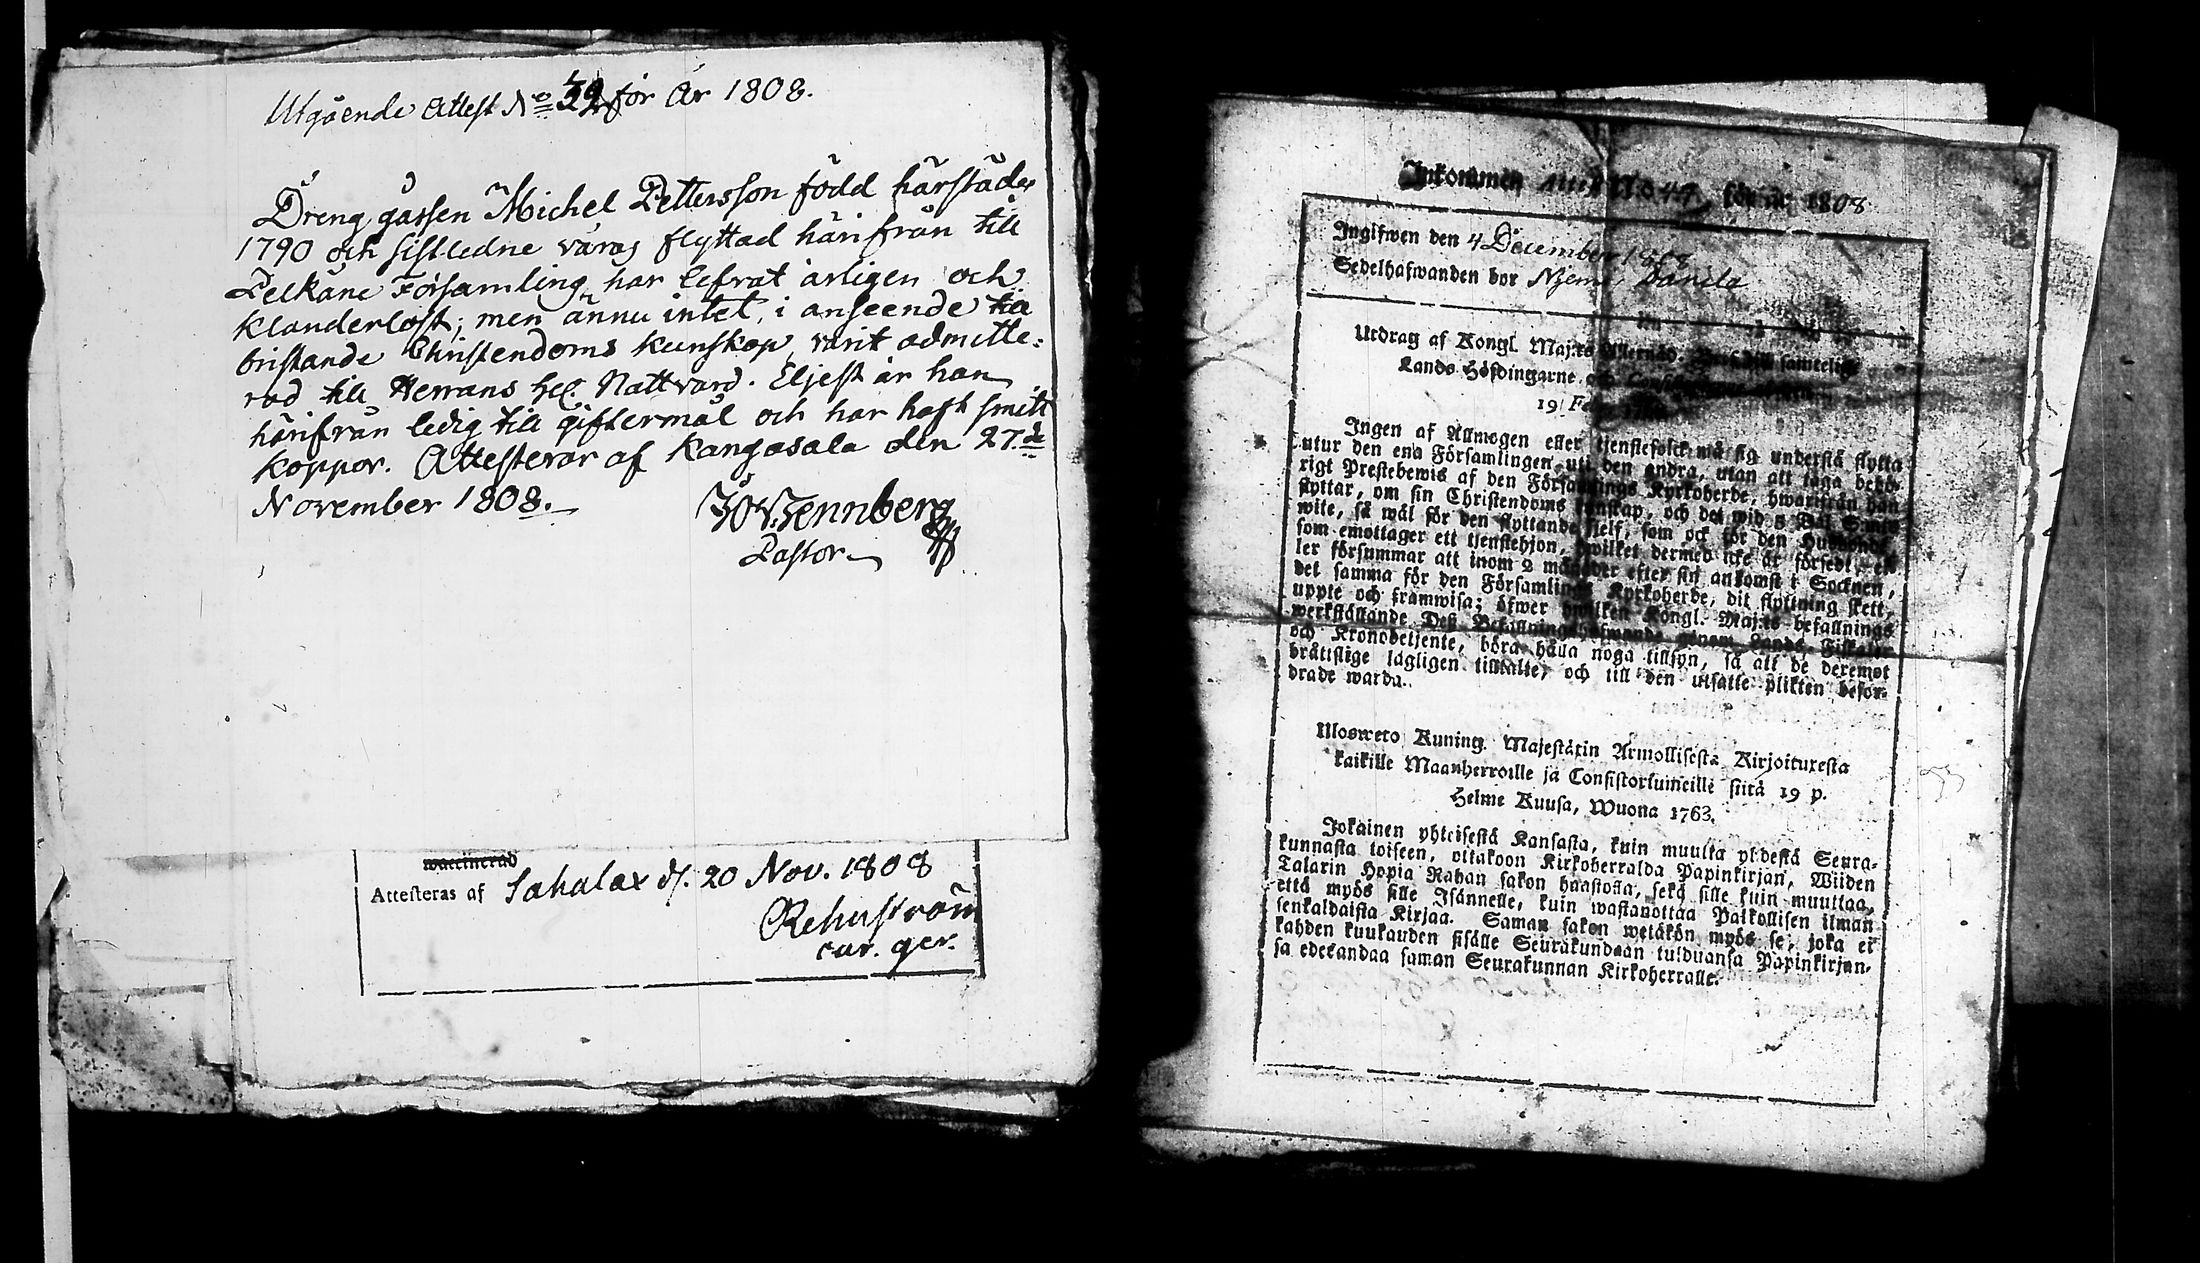 Utgående Attest No 39 för År 1808.
Dreng gåssen Michel Pettersson född härstädes
1790 och sistledne våras flyttad härifrån till
Pelkäne Församling, har lefvat ärligen och
klanderlöst; men ännu intet, i anseende till
bristande Christendoms kunskap, varit admitte=
rad till Herrans Hel. Nattvard. Eljest är han
härifrån ledig till giftermål och har haft smitt
koppor. Attesterar af Kangasala den 27de
November 1808.
Pastor
waccinerad
Attesteras af Sahalax d. 20 Nov. 1808
Rehnström
cur. ger.
Inkommen Attest No 44, för år 1808
Ingifwen den 4 December 1808
Sedelhafwanden bor Danila
Utdrag af Kongl. Maj:ts samtelige
Lands-Höfdingarne och
19 Febr.
Ingen af Allmogen eller tjenstefolck må sig understå flytta
utur den ena Församlingen uti den andra, utan att taga behö-
rigt Prestebewis af den Församlings Kyrkoherde, hwarifrån han
flyttar, om sin Christendoms kunskap, och det wid 5 Dal. S:mts
wite, så wäl för den flyttande sjelf, som ock för den Husbonde
som emottager ett tjenstehjon, hwilket dermed icke är försedt, el-
ler försummar att inom 2 månader efter sin ankomst i Socknen,
det samma för den Församlings Kyrkoherde, dit flyttning skett,
uppte och framwisa; öfwer hwilken Kongl. Maj:ts befallnings
werkställande Deß Befallningshafwande genom Lands-Fiskaler
och Kronobetjente, böra hålla noga tillsyn, så att de deremot
bråttslige lagligen tilltalte, och till den utsatte plikten befor-
drade warda.
Ulosweto Kuning. Majestätin Armollisesta Kirjoituxesta
kaikille Maanherroille ja Consistoriumeille siitä 19 p.
Helme Kuusa, Wuona 1763.
Jokainen yhteisestä Kansasta, kuin muutta yhdestä Seura-
kunnasta toiseen, ottakoon Kirkoherralda Papinkirjan, Wiiden
Talarin Hopia Rahan sakon haastolla, sekä sille kuin muuttaa,
että myös sille Isännelle, kuin wastanottaa Palkollisen ilman
senkaldaista Kirjaa. Saman sakon wetäkön myös se, joka ei
kahden kuukauden sisälle Seurakundaan tulduansa Papinkirjan-
sa edesandaa saman Seurakunnan Kirkoherralle.